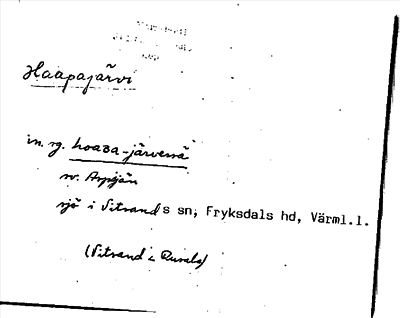 Haapajärvi
in. sg. hoaʒa-järvessä
sv. Aspjärn
sjö i Vitsands sn, Fryksdals hd, Värml.l.
(Vitsand